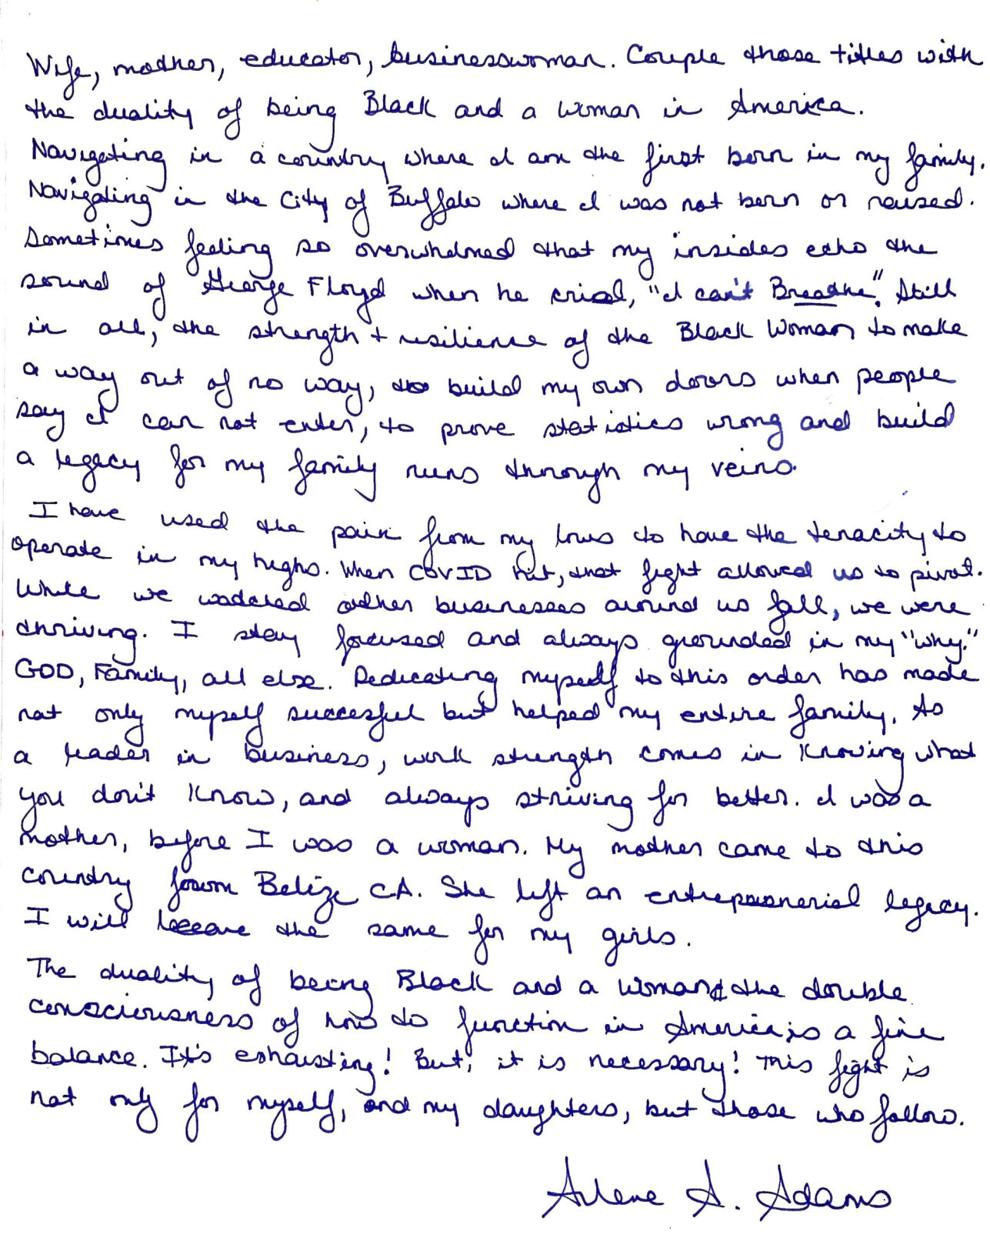 Wife, mother, educator, businesswoman. Couple those titles with
the duality of being Black and a woman in America.
Navigating in a country where I am the first born in my family.
Navigating in the City of Buffalo where I was not born or raised.
Sometimes feeling so overwhelmed that my insides echo the
sound of George Floyd when he cried, "I can't Breathe". Still
in all, the strength + resilience of the Black Woman to make
a way out of no way, to build my own doors when people
say I can not enter, to prove statistics wrong and build
a legacy for my family runs through my veins.
I have used the pain from my lows to have the tenacity to
operate in my highs. When COVID hit, that fight allowed us to pivot.
While we watched other businesses around us fall, we were
thriving. I stay focused and always grounded in my "why."
GOD, Family, all else. Dedicating myself to this order has made
not only myself succesful but helped my entire family. As
a leader in business, work strength comes in knowing what
you don't know, and always striving for better. I was a
mother, before I was a woman. My mother came to this
country from Belize C.A. She left an entrepeanerial legacy.
I will leave the same for my girls.
The duality of being Black and a woman & the double
consciousness of how to function in America is a fine
balance. It's exhausting! But, it is necessary! This fight is
not only for myself, and my daughters, but those who follow.
Arlene A. Adams